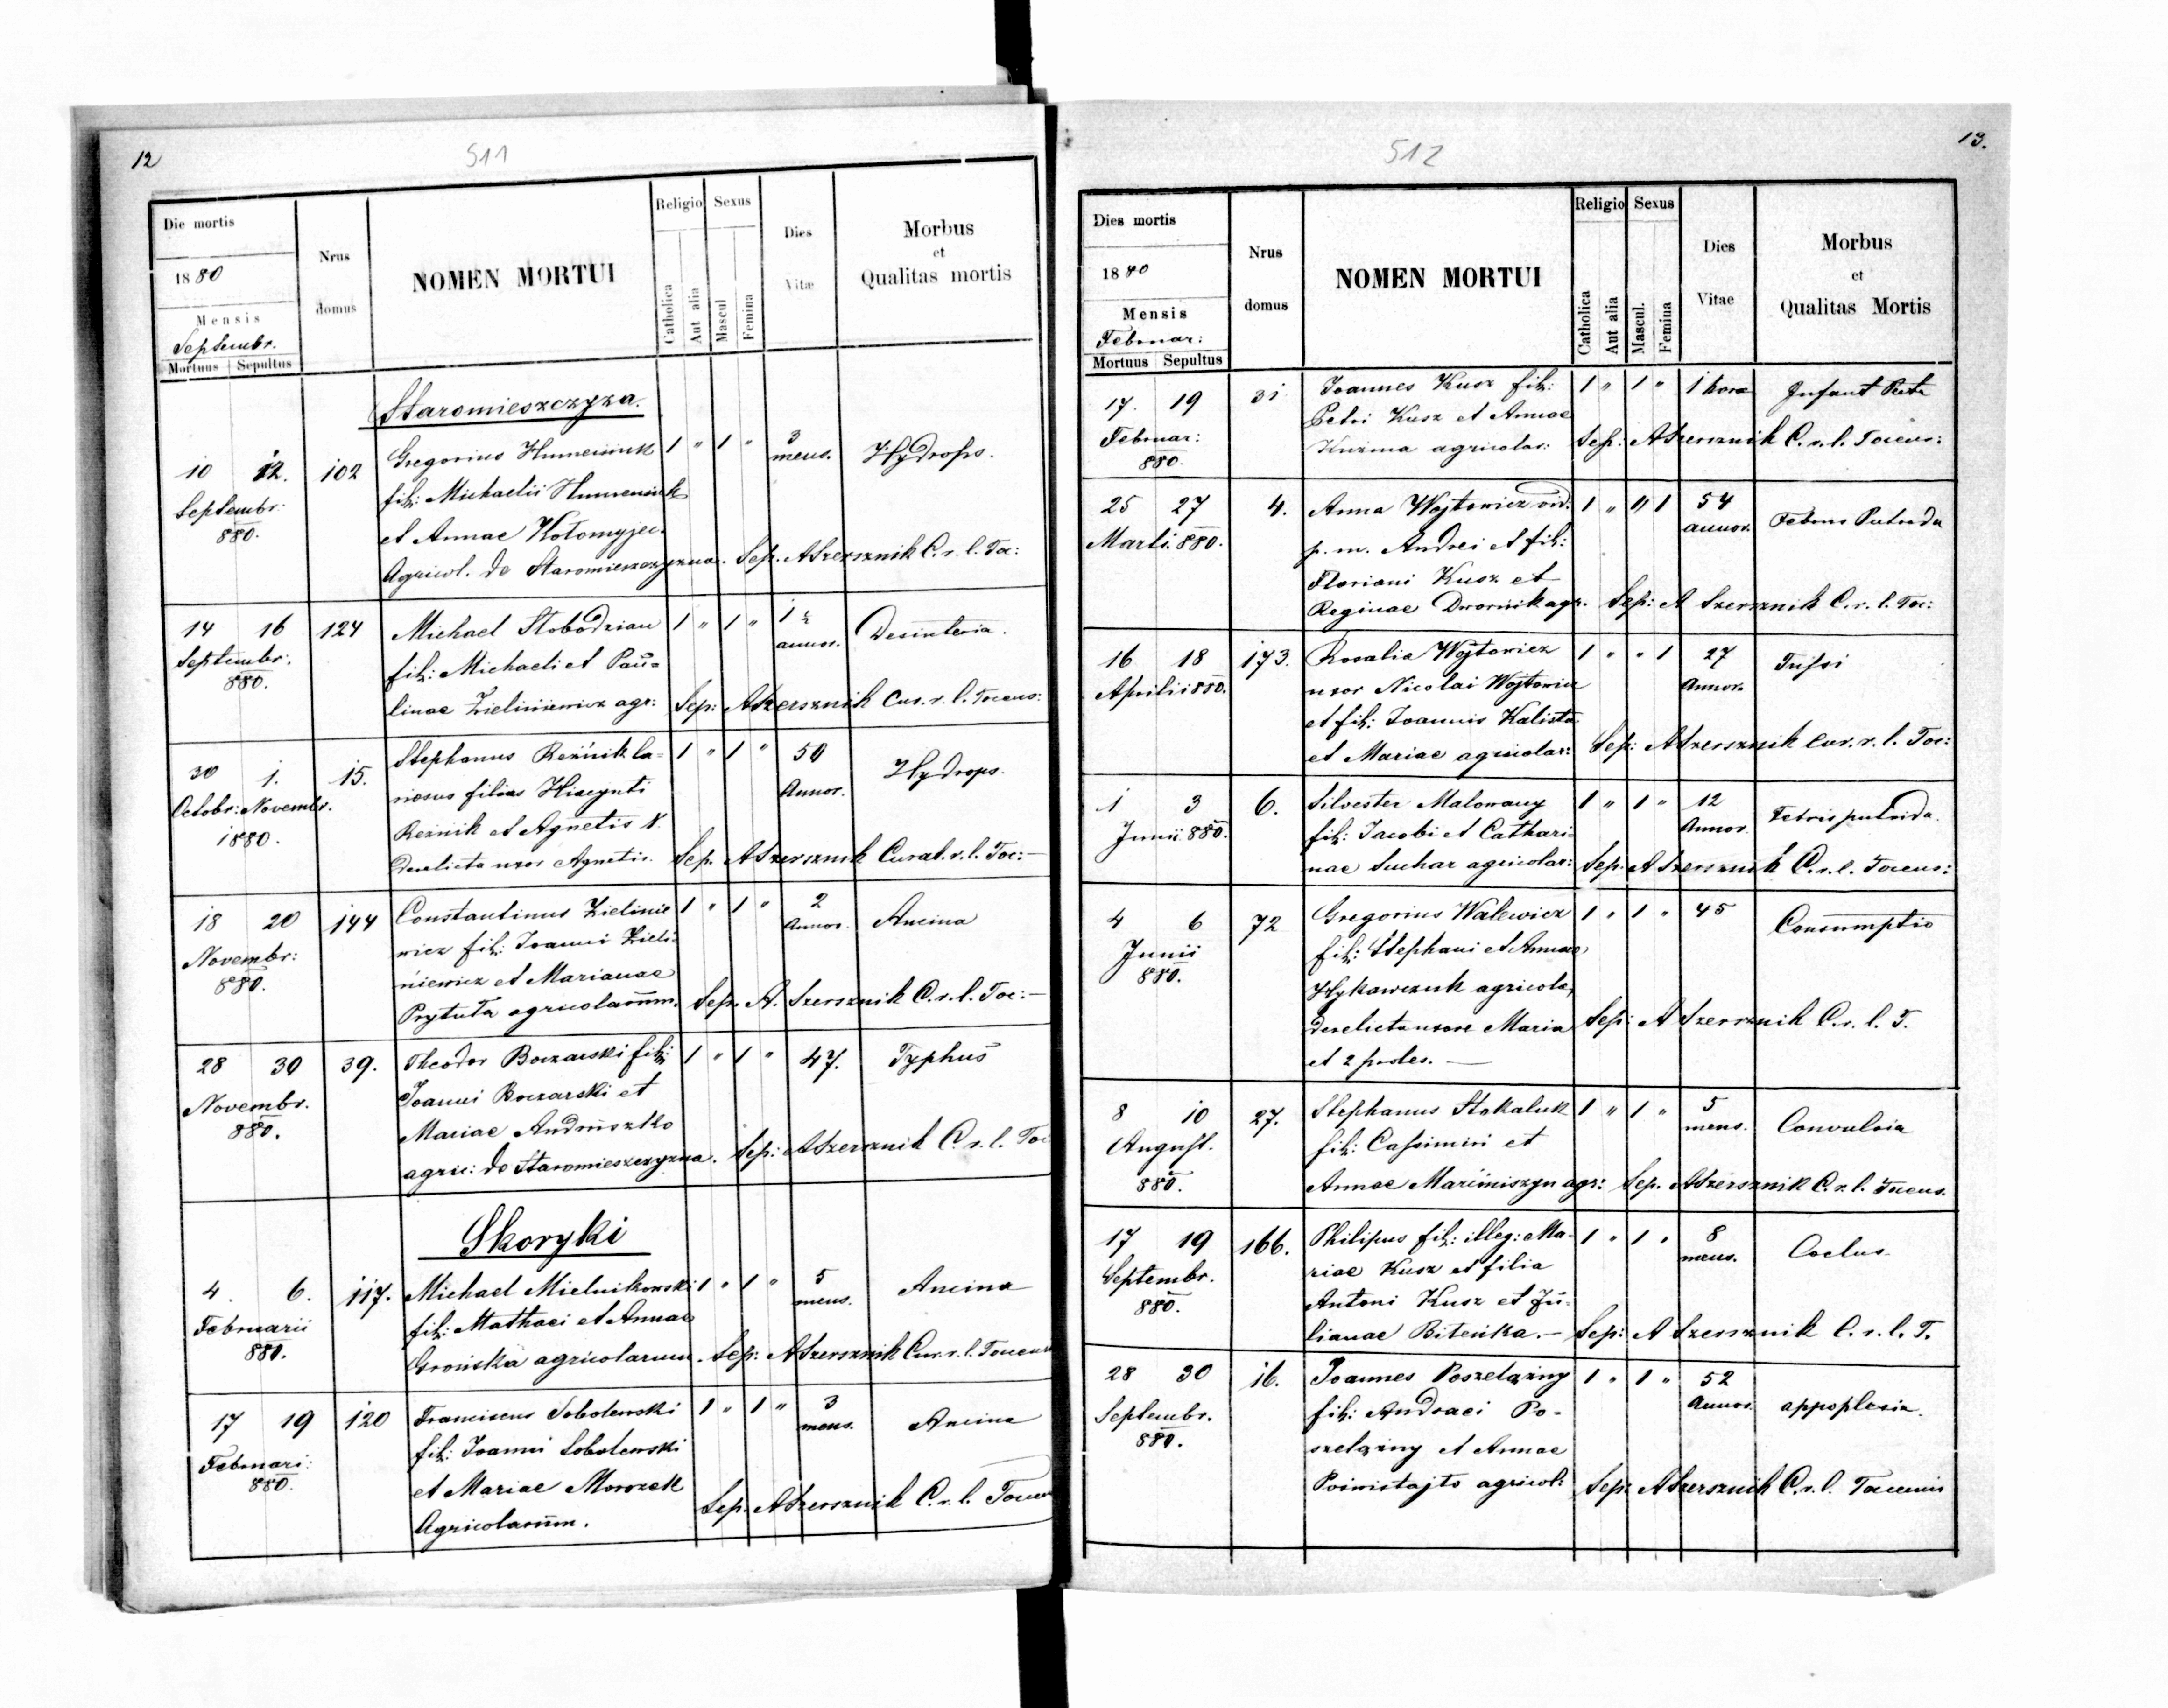 12
511
Die mortis
1880
Mensis
Septembr.
Mortuus Sepultus
Nrus domus
NOMEN MORTUI
Religio
Catholica
Aut alia
Sexus
Mascul
Femina
Dies Vitæ
Morbus et Qualitas mortis
Staromieszczyzna.
10 12. 102 Gregorius Humeniuk 1 " 1 " 3 mens. Hydrops.
Septembr. fil: Michaelii Humeniuk
880. et Annae Kołomyjec.
Agricol. de Staromieszczyzna. Sep. ASzersznik C. r. l. Toc:
14 16 124 Michael Słobodzian 1 " 1 " 1 ½ annor. Desinteria.
Septembr. fil: Michaeli et Pau=
880. linae Zieliniewicz agr: Sep: ASzersznik Cur. r. l. Tocens:
30 1. 15. Stephanus Reźnik la= 1 " 1 " 50 Annor. Hydrops.
Octobr: Novembr. niosus filius Hiacynti
1880. Reźnik et Agnetis N.
derelicta uxor Agnetis. Sep. ASzersznik Curat. r. l. Toc:—
18 20 144 Constantinus Zielinie 1 " 1 " 2 Annor. Ancina
Novembr: wicz fil: Joanni Zieli=
880. niewicz et Marianae
Prytuła agricolarum. Sep. A. Szersznik C. r. l. Toc:—
28 30 39. Theodor Boczarski fil: 1 " 1 " 47. Typhus
Novembr. Joanni Boczarski et
880. Mariae Andruszko
agric: de Staromieszczyzna. Sep: ASzersznik C. r. l. Toc
Skoryki
4. 6. 117. Michael Mielnikowski 1 " 1 " 5 mens. Ancina
Februarii fil: Mathaei et Annae
880. Grońska agricolarum. Sep: ASzersznik Cur. r. l. Tocens
17 19 120 Franciscus Sobolewski 1 " 1 " 3 mens. Ancina
Februari: fil: Joanni Sobolewski
880. et Mariae Morozek
Agricolarum. Sep. ASzersznik C. r. l. Tocen
13.
512
Dies mortis
1880
Mensis
Februar:
Mortuus Sepultus
Nrus domus
NOMEN MORTUI
Religio
Catholica
Aut alia
Sexus
Mascul.
Femina
Dies Vitae
Morbus et Qualitas Mortis
17. 19 31 Joannes Kusz fil: 1 " 1 " 1 hora Infant
Februar: Petri Kusz et Annae
880. Kuźma agricolar: Sep: ASzersznik C. r. l. Tocens:
25 27 4. Anna Wojtowicz vid. 1 " " 1 54 annor. Febris Putrida
Marti. 880. p. m. Andrei et fil:
Floriani Kusz et
Reginae Dwornik agr. Sep: A Szersznik C. r. l. Toc:
16 18 173. Rosalia Wojtowicz 1 " " 1 27 Annor. Tussi
Aprili 1880. uxor Nicolai Wojtowicz
et fil: Joannis Kalista
et Mariae agricolar: Sep: ASzersznik Cur. r. l. Toc:
1 3 6. Silvester Malowany 1 " 1 " 12 Annor. Febris putrida.
Junii. 880. fil: Jacobi et Cathari
nae Suchar agricolar: Sep. ASzersznik C. r. l. Tocens:
4 6 72 Gregorius Walewicz 1 " 1 " 45 Consumptio
Junii fil: Stephani et Annae
880. Hykawczuk agricola,
derelicta uxore Maria Sep: A Szersznik C. r. l. T.
et 2 proles. —
8 10 27. Stephanus Stokaluk 1 " 1 " 5 mens. Convulsia
August. fil: Cassimiri et
880. Annae Maximiszyn agr: Sep. ASzersznik C. r. l. Tocens.
17 19 166. Philipus fil: illeg: Ma= 1 " 1 " 8 mens.
Septembr. riae Kusz et filia
880. Antoni Kusz et Ju=
lianae Biteńka. — Sep: A Szersznik C. r. l. T.
28 30 16. Joannes Poszelązny 1 " 1 " 52 Annor. appoplexia.
Septembr. fil: Andraei Po-
880. szelązny et Annae
agricol: Sep: ASzersznik C. r. l. Tocensis